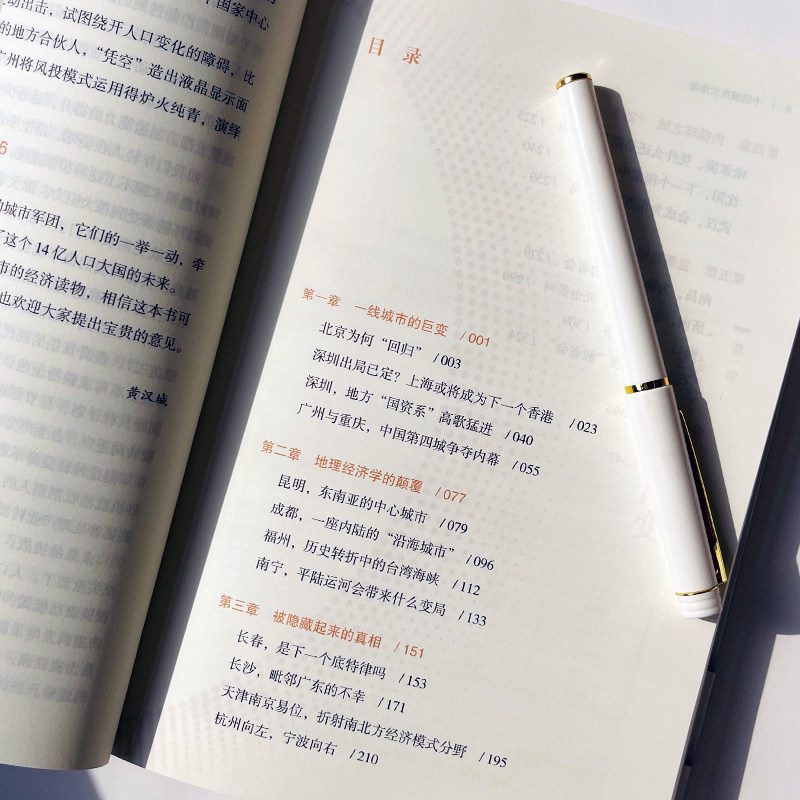 国家中心
动出击，试图绕开人口变化的障碍，比
的地方合伙人，“凭空”造出液晶显示面
广州将风投模式运用得炉火纯青，演绎
6
的城市军团，它们的一举一动，牵
了这个14亿人口大国的未来。
市的经济读物，相信这本书可
也欢迎大家提出宝贵的意见。
黄汉城
目录
第一章 一线城市的巨变 / 001
北京为何“回归” / 003
深圳出局已定？上海或将成为下一个香港 / 023
深圳，地方“国资系”高歌猛进 / 040
广州与重庆，中国第四城争夺内幕 / 055
第二章 地理经济学的颠覆 / 077
昆明，东南亚的中心城市 / 079
成都，一座内陆的“沿海城市” / 096
福州，历史转折中的台湾海峡 / 112
南宁，平陆运河会带来什么变局 / 133
第三章 被隐藏起来的真相 / 151
长春，是下一个底特律吗 / 153
长沙，毗邻广东的不幸 / 171
天津南京易位，折射南北方经济模式分野 / 195
杭州向左，宁波向右 / 210